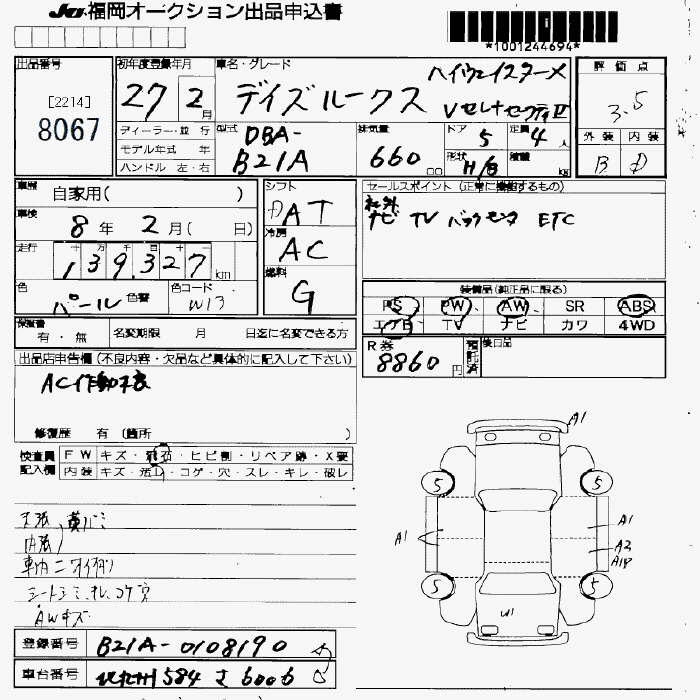 JU福岡オークション出品申込書
*1001244694*
出品番号
[2214]
8067
初年度登録年月
27 2月
車名・グレード
ハイウェイスターX
デイズルークス
Vセレ+セーフティII
評価点
3.5
外装 内装
B D
ディーラー・並行
モデル年式 年
ハンドル 左・右
型式
DBA-
B21A
排気量
660 cc
ドア
5
定員
4人
形状
H/B
積載
kg
車歴
自家用( )
車検
8年 2月( 日)
走行
十 万 千 百 十 一
139,327 km
色
パール
色替
色コード
W13
シフト
DAT
冷房
AC
燃料
G
セールスポイント(正常に機能するもの)
社外
ナビ TV バックモニタ ETC
装備品(純正品に限る)
PS PW AW SR ABS
エアB TV ナビ カワ 4WD
保証書
有・無
名変期限 月 日迄に名変できる方
R券
8860円
預託済
後日品
出品店申告欄(不良内容・欠品など具体的に記入して下さい)
AC作動不良
修復歴 有(箇所 )
検査員
記入欄
FW キズ・飛石・ヒビ割・リペア跡・X要
内装 キズ・汚レ・コゲ・穴・スレ・キレ・破レ
天張
内張
シートシミ、キレ、コゲ穴
AWキズ
A1
5 5
A1 A1
A2
5 5
W1
登録番号 B21A-0108190
車台番号 北九州 584 さ 6006